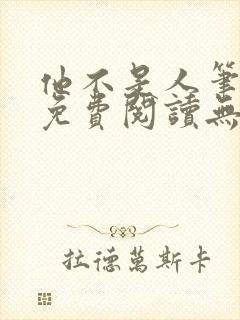 他不是人筆
免費閱讀無
拉德萬斯卡